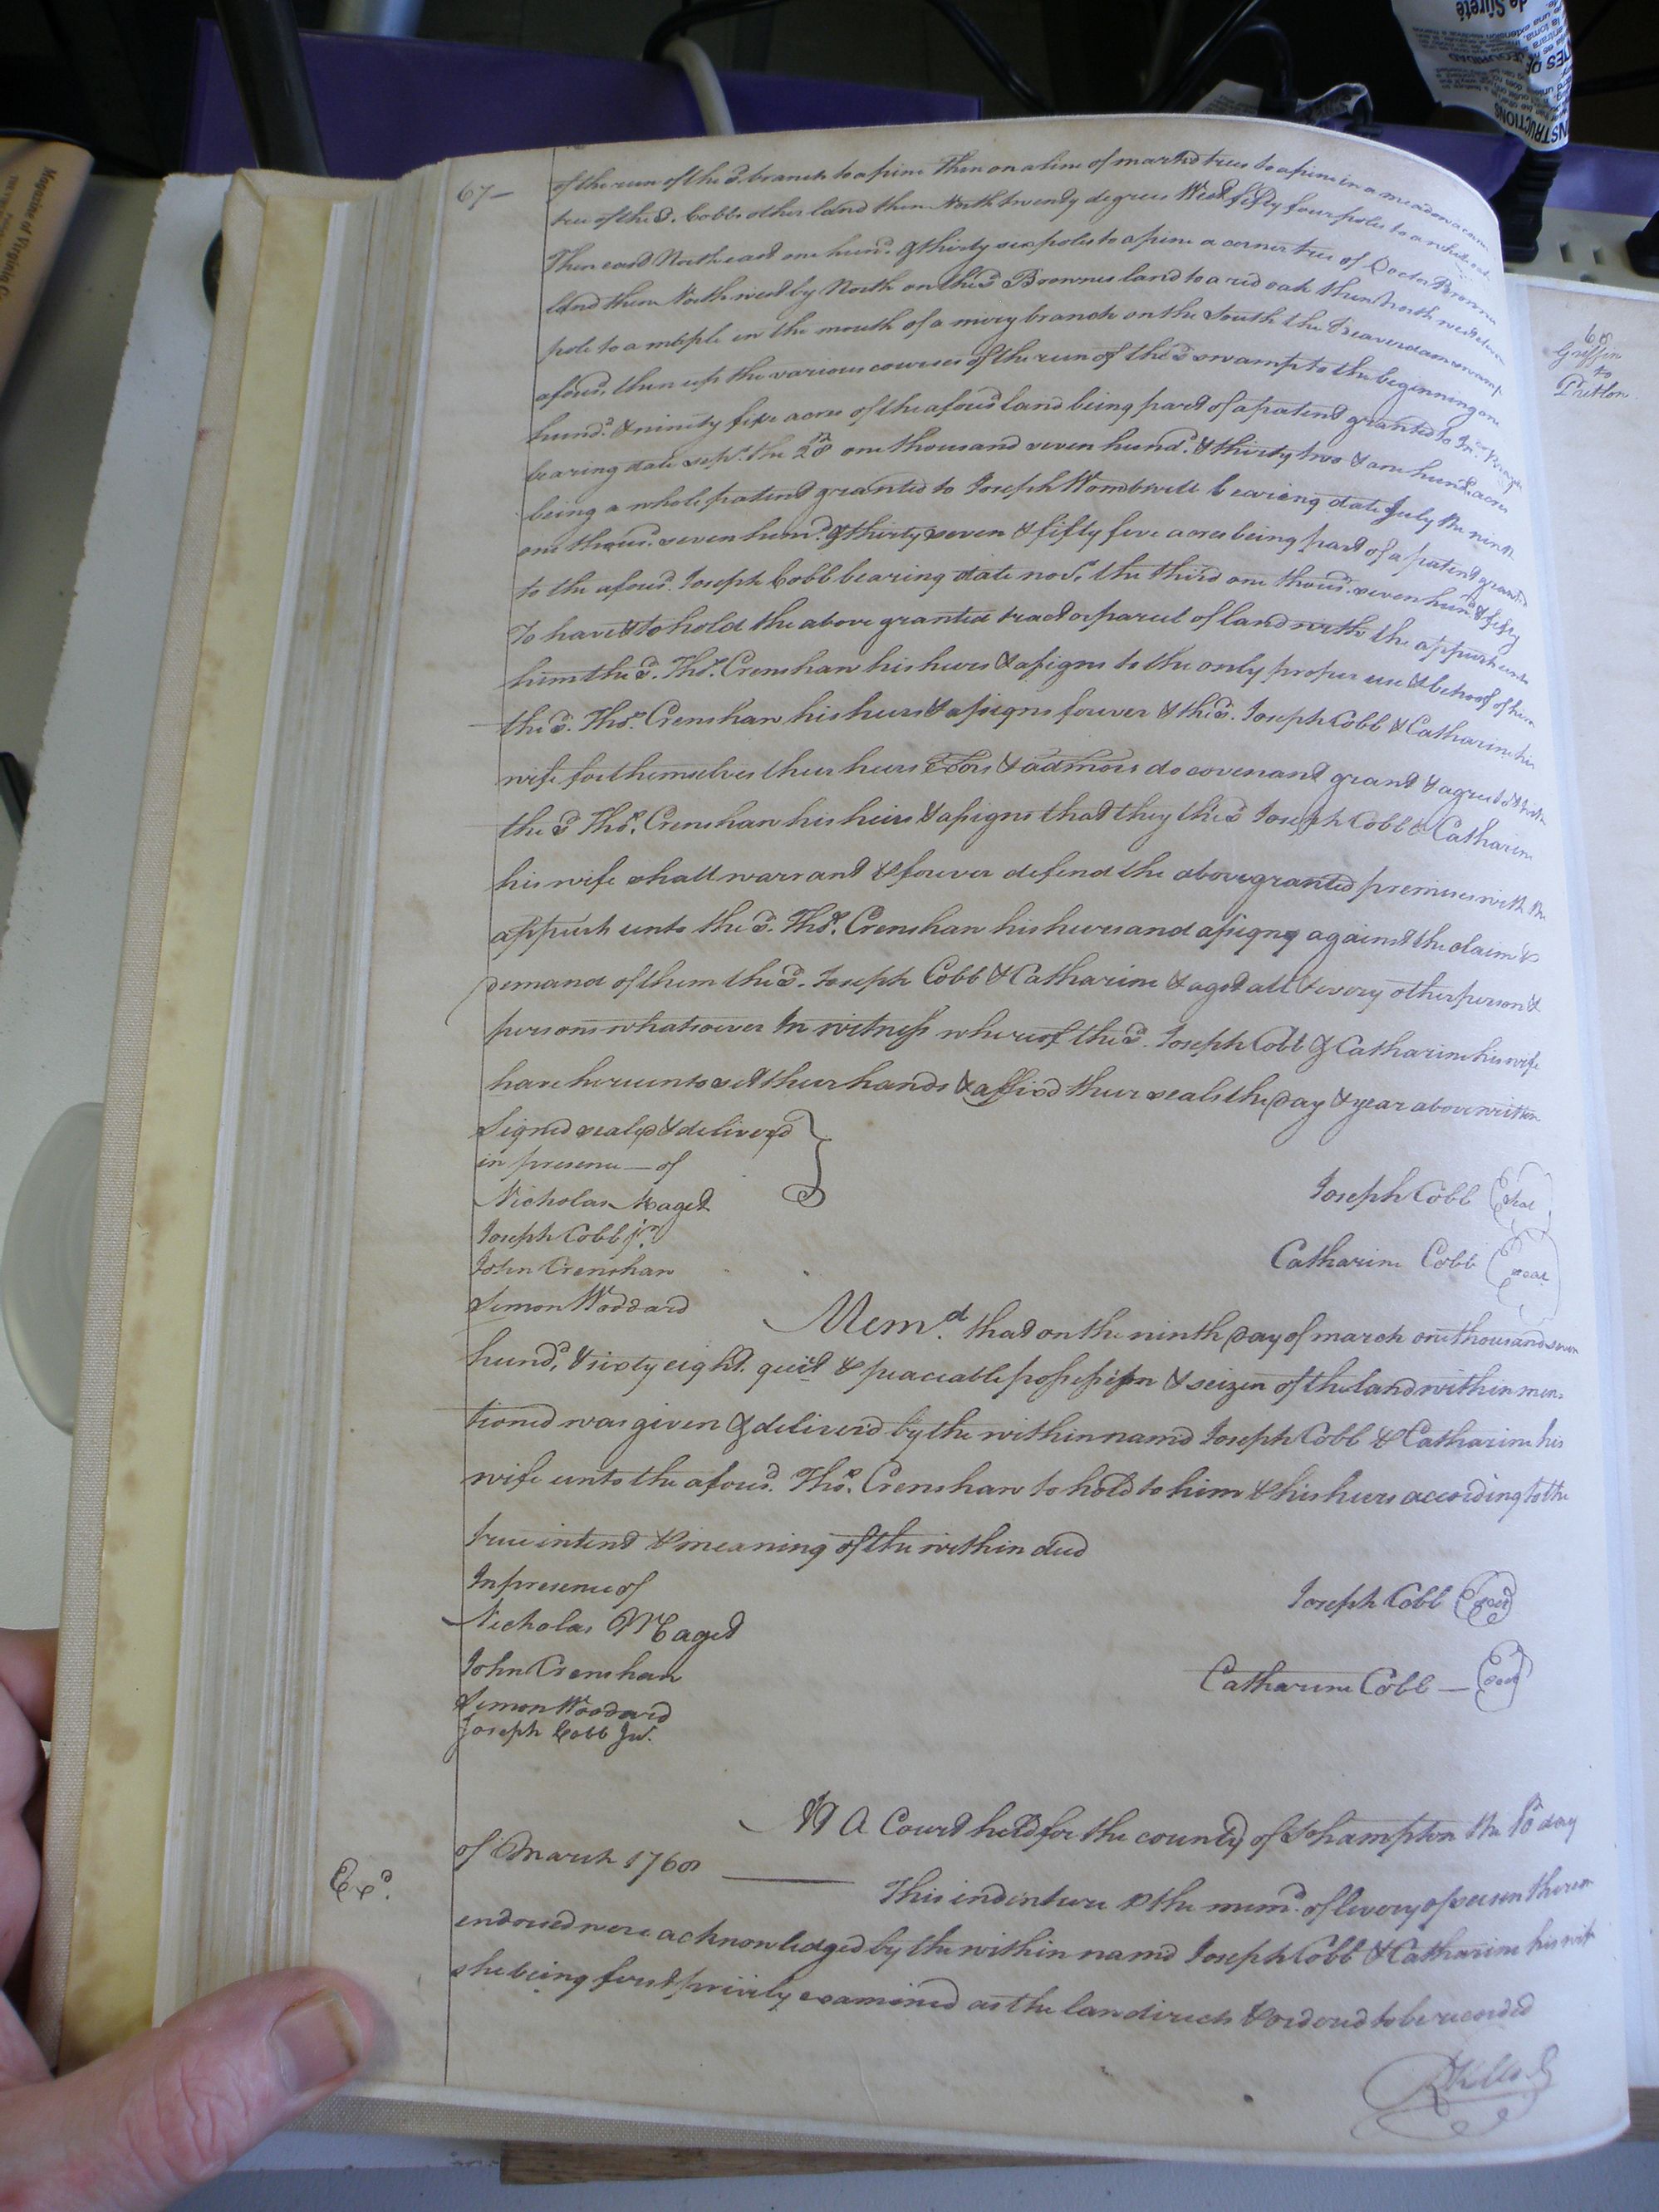 67–
of the run of the sd. branch to a pine then on a line of markd trees to a pine in a meadow a corner
tree of the sd. Cobbs other land then North twenty degrees West fifty four poles to a white oak
Then east North east one hund. & thirty six poles to a pine a corner tree of Doctr. Browns
land then North west by North on the sd Brownes land to a red oak then North west eleven
pole to a maple in the mouth of a miry branch on the South the Beaverdam swamp
afousd. then up the various courses of the run of the sd swamp to the beginning one
hund. & ninety five acres of the afousd land being part of a patent granted to Jn.
bearing date sepr. the 28 one thousand seven hund. & thirty two & one hund. acres
being a whole patent granted to Joseph Wombwell bearing date July the ninth
one thous. seven hund. & thirty seven & fifty five acres being part of a patent granted
to the afousd. Joseph Cobb bearing date nov. the third one thous. seven hund. & fifty
To have & to hold the above granted tract or parcel of land with the appurts unto
him the sd. Thos. Crenshaw his heirs & assigns to the only proper use & behoof of him
the sd. Thos. Crenshaw his heirs & assigns forever & the sd. Joseph Cobb & Catharine his
wife for themselves their heirs Exors & admors do covenant grant & agree to & with
the sd Thos. Crenshaw his heirs & assigns that they the sd Joseph Cobb & Catharine
his wife shall warrant & forever defend the above granted premises with the
appurts unto the sd. Thos. Crenshaw his heirs and assigns against the claim &
demand of them the sd. Joseph Cobb & Catharine & agst all & every other person &
persons whatsoever In witness whereof the sd. Joseph Cobb & Catharine his wife
have hereunto set their hands & affixd their seals the day & year above written
Signed seald & deliverd
in presence — of
Nicholas Maget
Joseph Cobb [seal]
Joseph Cobb jr.
John Crenshaw
Catharine Cobb [seal]
Simon Woodard
Memd. that on the ninth day of march one thousand seven
hund. & sixty eight. quiet & peaceable possession & seizen of the land within men-
tioned was given & deliverd by the within namd Joseph Cobb & Catharine his
wife unto the afousd. Thos. Crenshaw to hold to him & his heirs according to the
true intent & meaning of the within deed
In presence of
Joseph Cobb [seal]
Nicholas Maget
John Crenshaw
Catharine Cobb — [seal]
Simon Woodard
Joseph Cobb Jur.
At A Court held for the county of Sohampton the 10 day
of March 1768
Exd.
This indenture & the memd. of livery of seisen thereon
endorsed were acknowledged by the within namd Joseph Cobb & Catharine his wife
she being first privily examined as the law directs & orderd to be recorded
68
Griffin
to
Pretlow
Magnitie of Virginia C
INSTRUCTIONS
de Sûreté